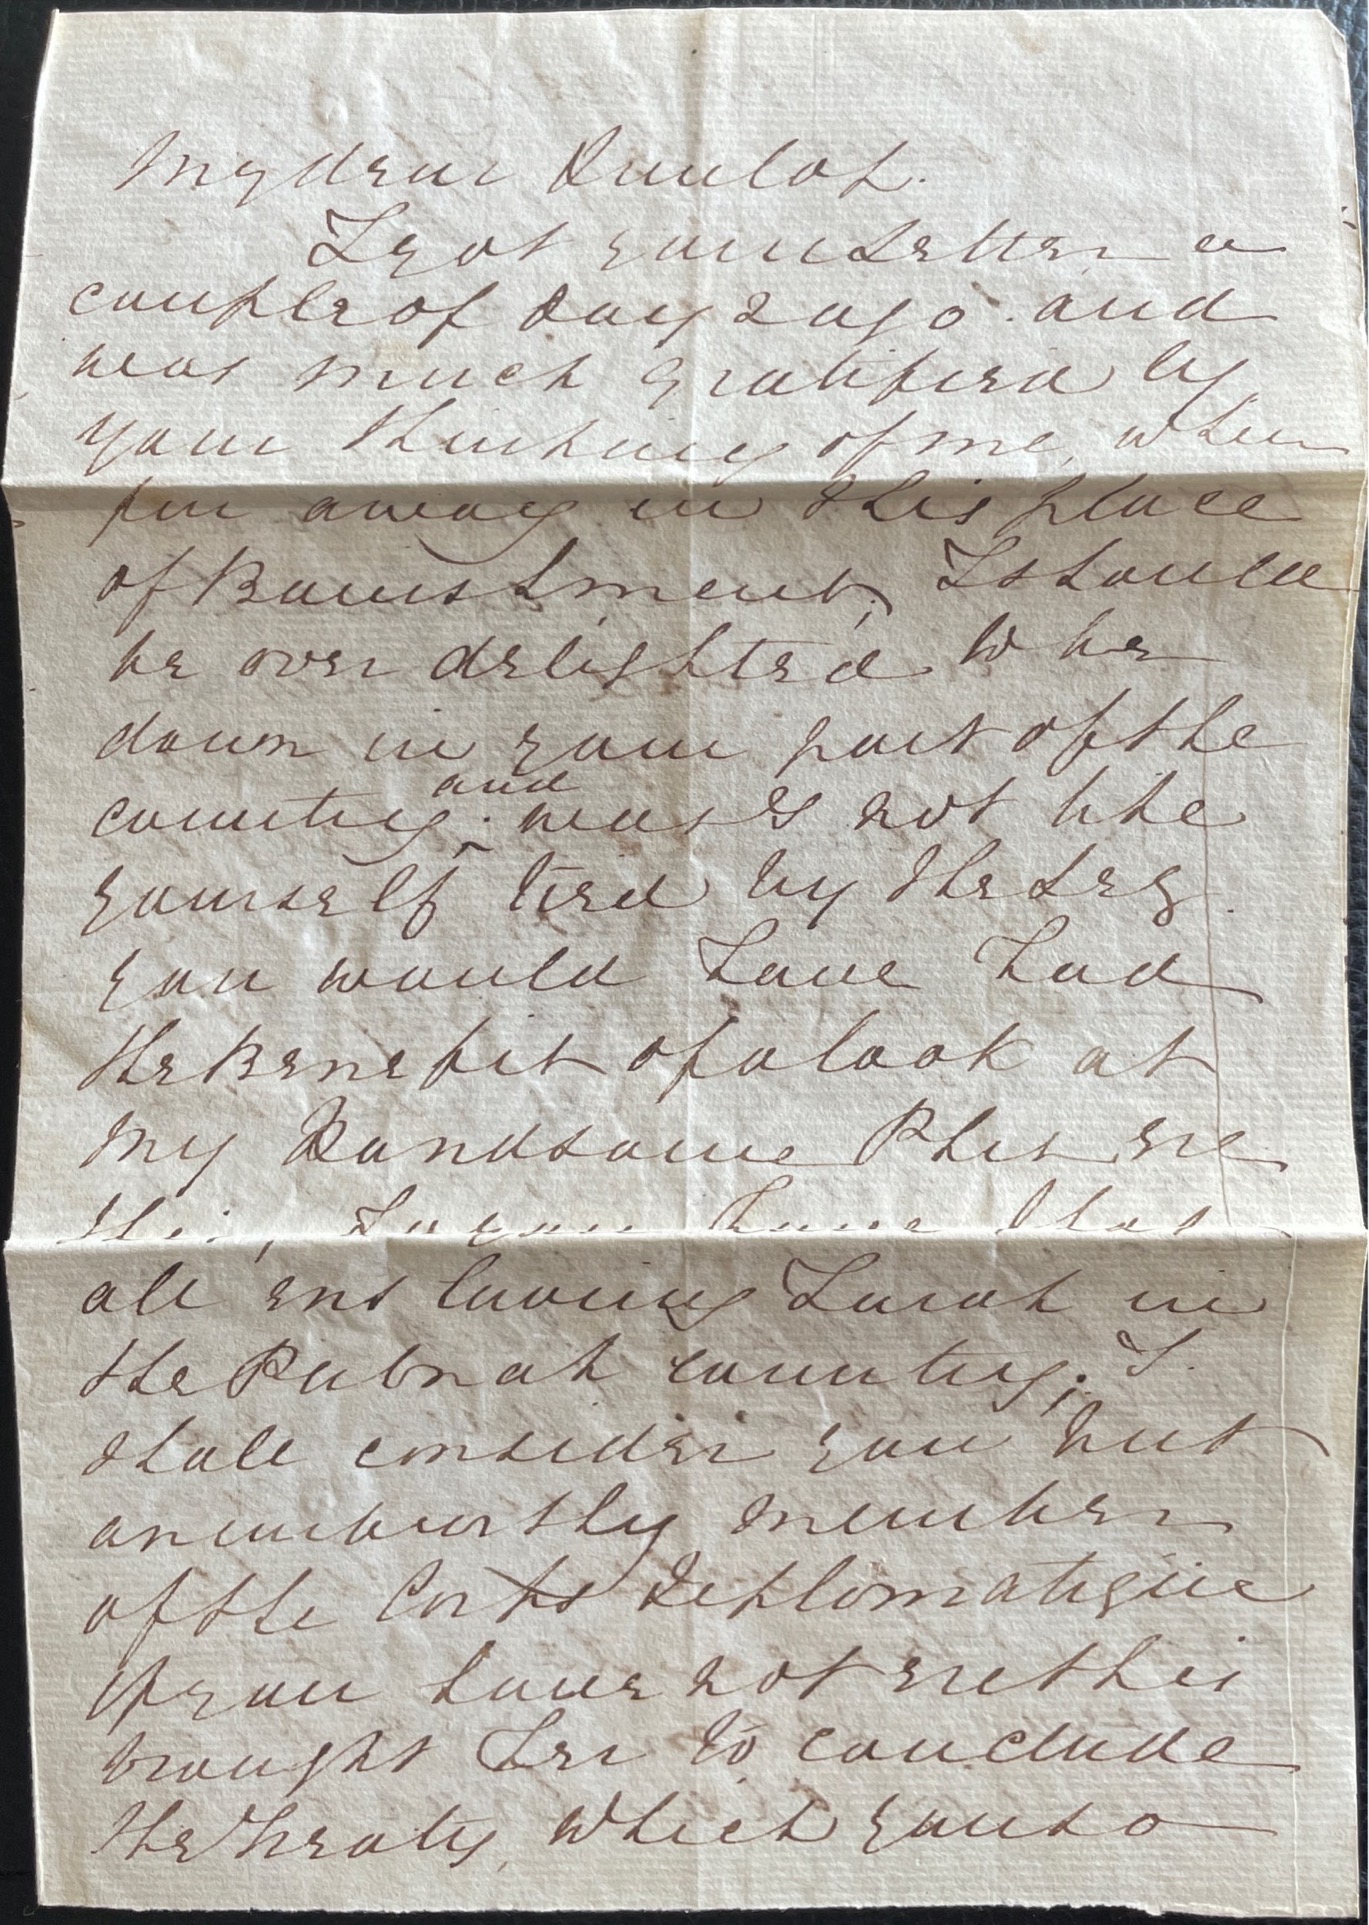 My dear Dunlop.
I got your Letter a
couple of days ago. and
was much gratified by
your thinking of me, when
far away in this place
of Banishment, I should
be over delighted to be
down in your part of the
country. and was I not like
yourself tied by the Leg.
you would have had
the Benefit of a look at
My Handsome Phis ere
this, So you have that
all enslaving Sarah in
the Pubnah country; I
shall consider you but
an unworthy member
of the Corps Diplomatique
if you have not ere this
brought her to conclude
the treaty, which you so